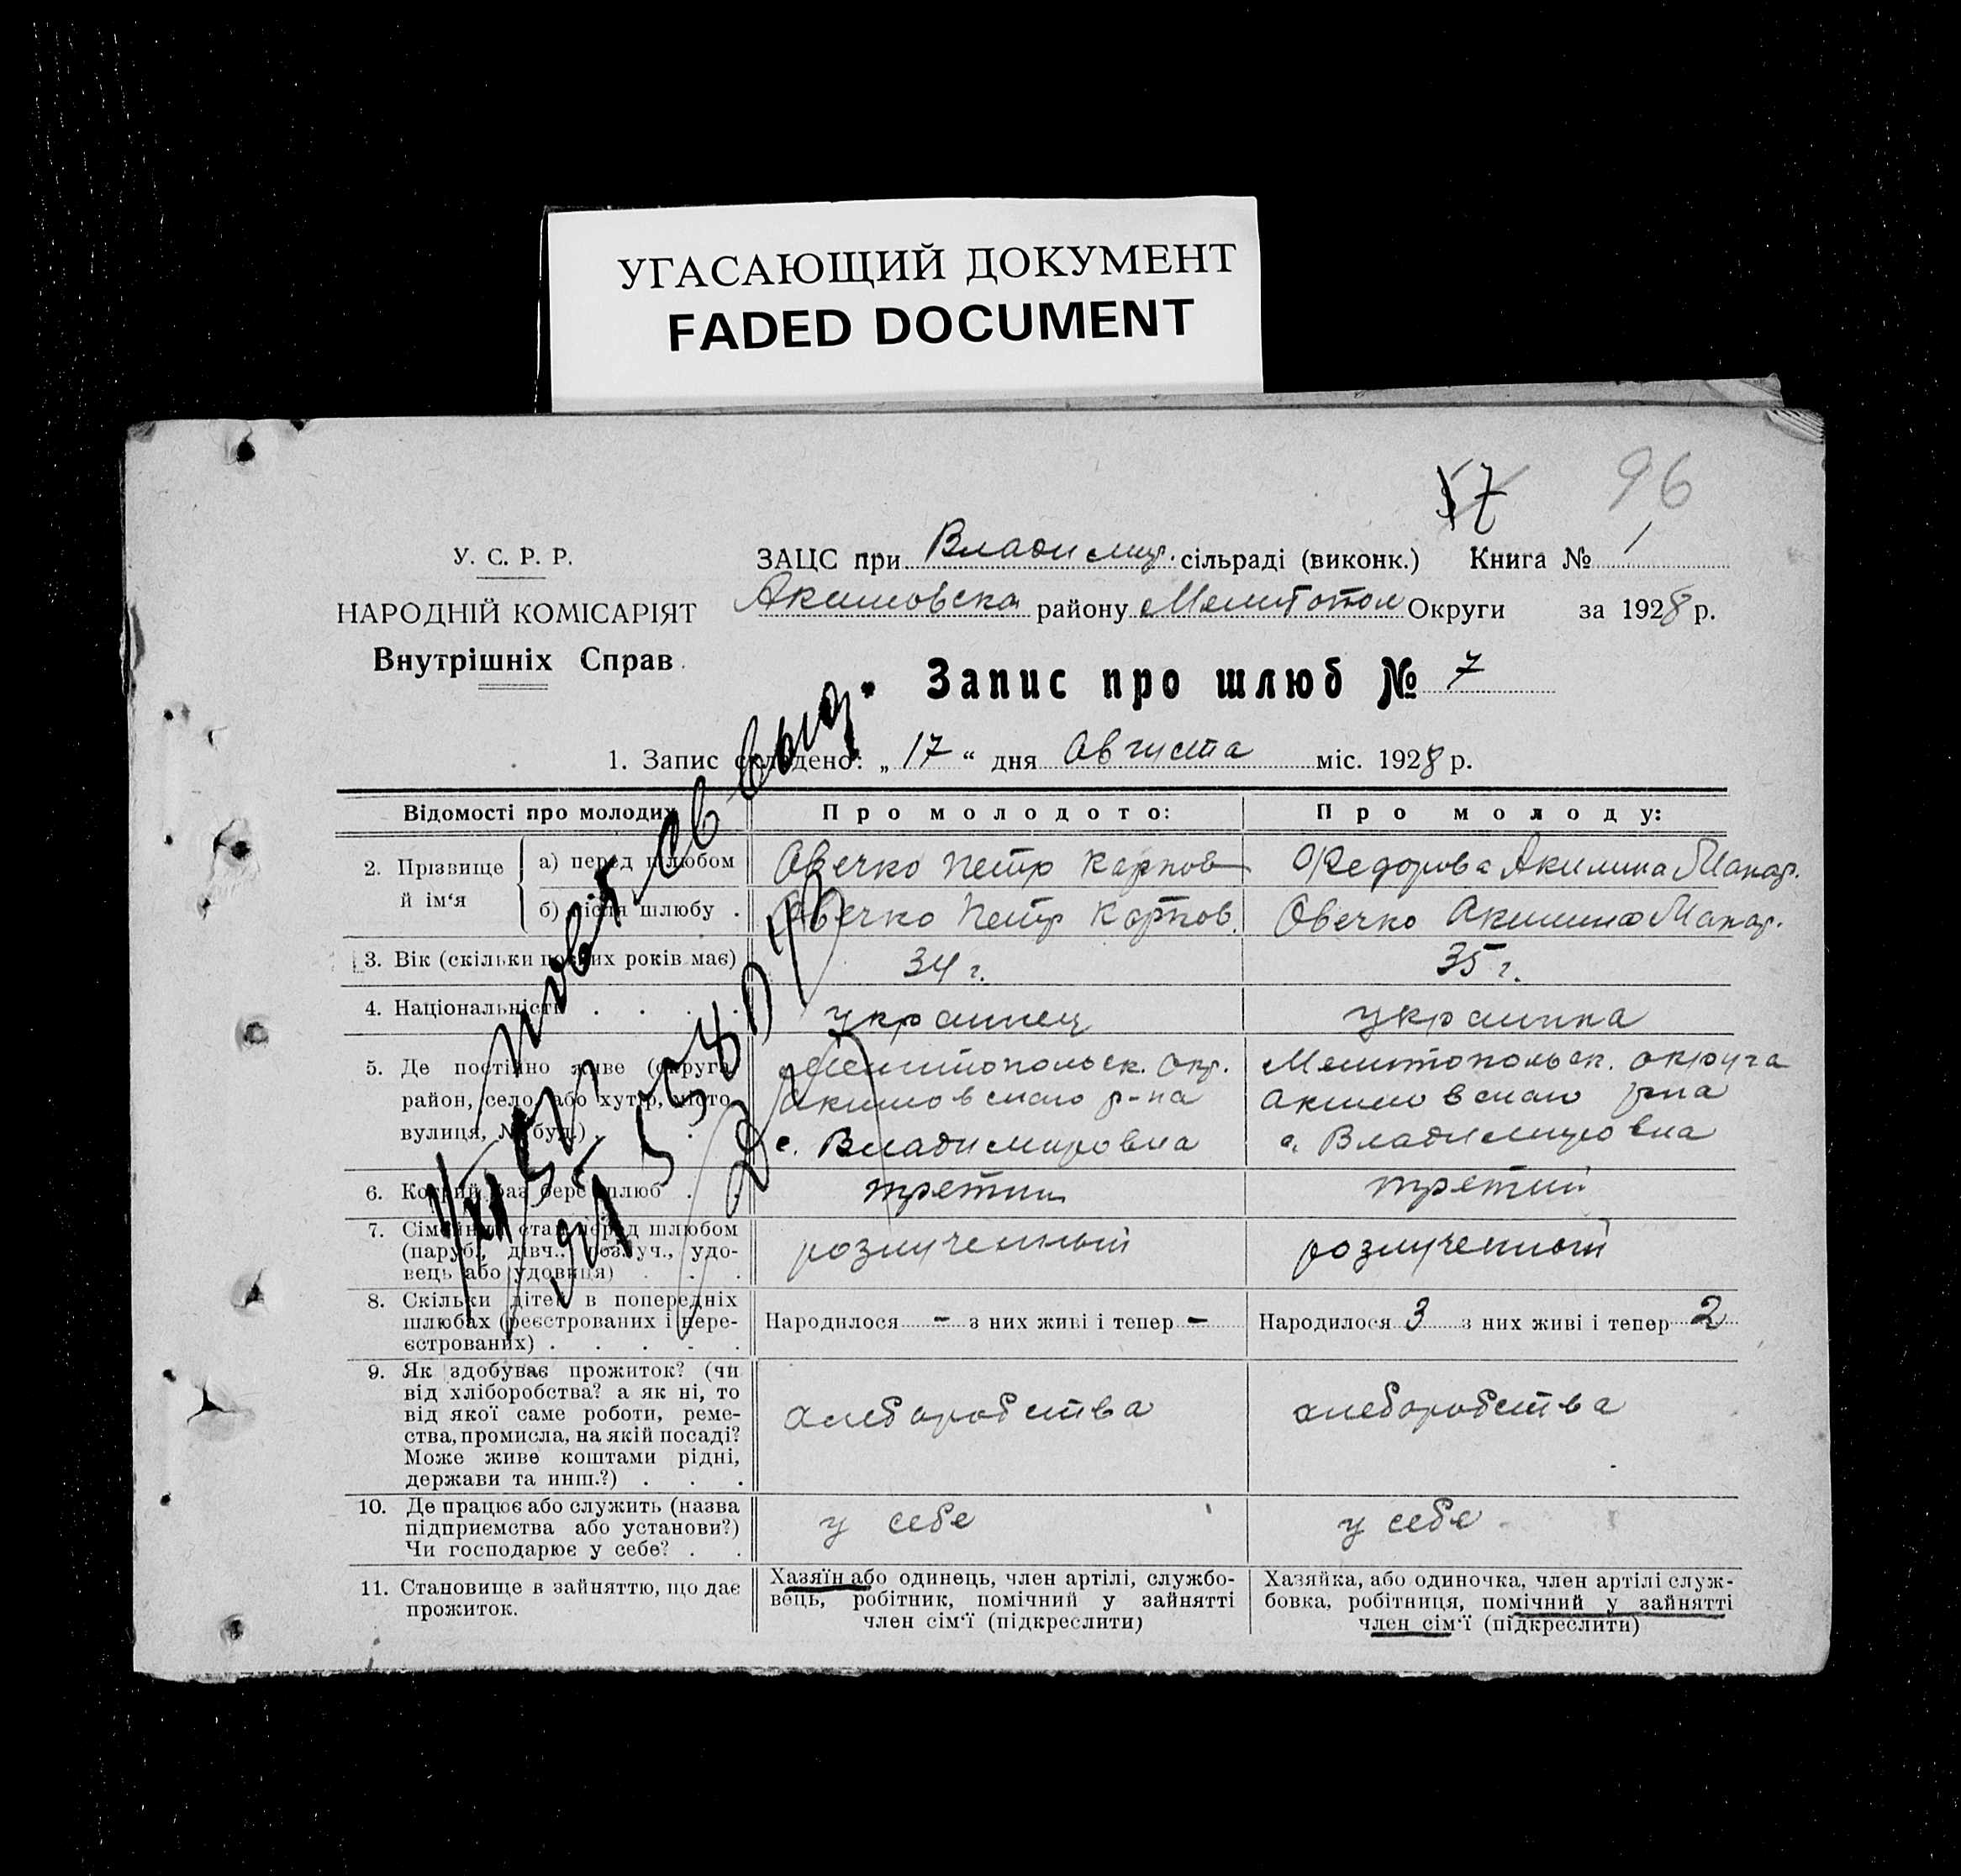 УГАСАЮЩИЙ ДОКУМЕНТ
FADED DOCUMENT
96
У. С. Р. Р.
НАРОДНІЙ КОМІСАРІЯТ
Внутрішніх Справ
ЗАЦС при Владимир. сільраді (виконк.) Книга № 1
Акимовска району Мелитопол Округи за 1928 р.
Запис про шлюб № 7
1. Запис складено: „17“ дня Августа міс. 1928 р.
Відомості про молодих
Про молодого:
Про молоду:
2. Прізвище й ім'я
а) перед шлюбом
Овечко Петр Карпов
Федорова Акилина Макар.
б) після шлюбу .
Овечко Петр Карпов.
Овечко Акилина Макар.
3. Вік (скільки повних років має)
34 г.
35 г.
4. Національність . . . .
украинец
украинка
5. Де постійно живе (округа,
район, село або хутір, місто,
вулиця, № буд.) . .
Мелитопольск. Окр.
Акимовского р-на
с. Владимировка
Мелитопольск. округа
Акимовского рна
с. Владимировка
6. Котрий раз бере шлюб . .
третий
третий
7. Сімейний стан перед шлюбом
(паруб., дівч., розлуч., удо-
вець або удовиця) . . .
розлученный
розлученный
8. Скільки дітей в попередніх
шлюбах (реєстрованих і нере-
єстрованих) . . . . .
Народилося - з них живі і тепер -
Народилося 3 з них живі і тепер 2
9. Як здобуває прожиток? (чи
від хліборобства? а як ні, то
від якої саме роботи, реме-
ства, промисла, на якій посаді?
Може живе коштами рідні,
держави та инш.?) . . .
хлеборобства
хлеборобства
10. Де працює або служить (назва
підприємства або установи?)
Чи господарює у себе? . .
у себе
у себе
11. Становище в зайняттю, що дає
прожиток.
Хазяїн або одинець, член артілі, службо-
вець, робітник, помічний у зайнятті
член сім'ї (підкреслити)
Хазяйка, або одиночка, член артілі служ-
бовка, робітниця, помічний у зайнятті
член сім'ї (підкреслити)